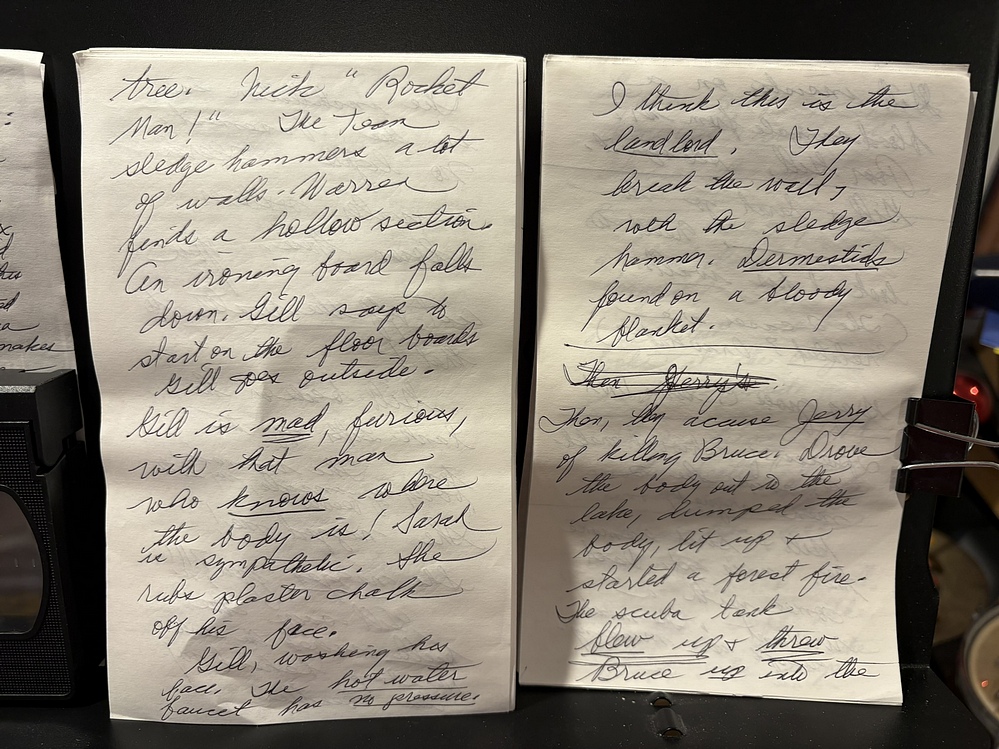 :
x,
d
ad
a
makes
tree. Nick "Rocket
Man!" The team
sledge hammers a lot
of walls. Warren
finds a hollow section.
An ironing board falls
down. Gill says to
start on the floor boards
Gill goes outside.
Gill is mad, furious,
with that man
who knows where
the body is! Sarah
is sympathetic. She
rubs plaster chalk
off his face.
Gill, washing his
face. The hot water
faucet has no pressure.
I think this is the
landlord. They
break the wall,
with the sledge
hammer. Dermestids
found on a bloody
blanket.
Then Jerry's.
Then, they accuse Jerry
of killing Bruce. Drove
the body out to the
lake, dumped the
body, lit up +
started a forest fire.
The scuba tank
blew up + threw
Bruce up into the